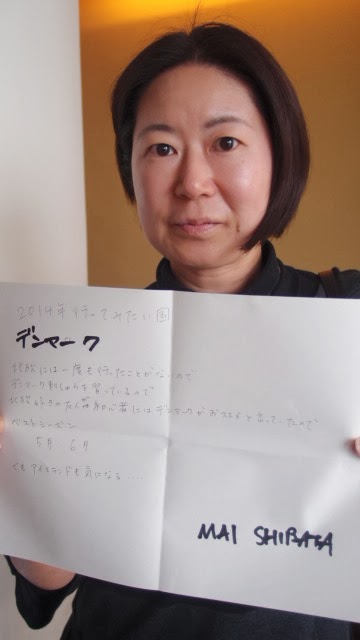 2014年 行ってみたい国
デンマーク
北欧には一度も行ったことがないので
デンマーク刺しゅうを習っているので
北欧好きの友人が初心者にはデンマークがおススメと言っていたので
ベストシーズン
5月 6月
でもアイルランドも気になる....
MAI SHIBATA